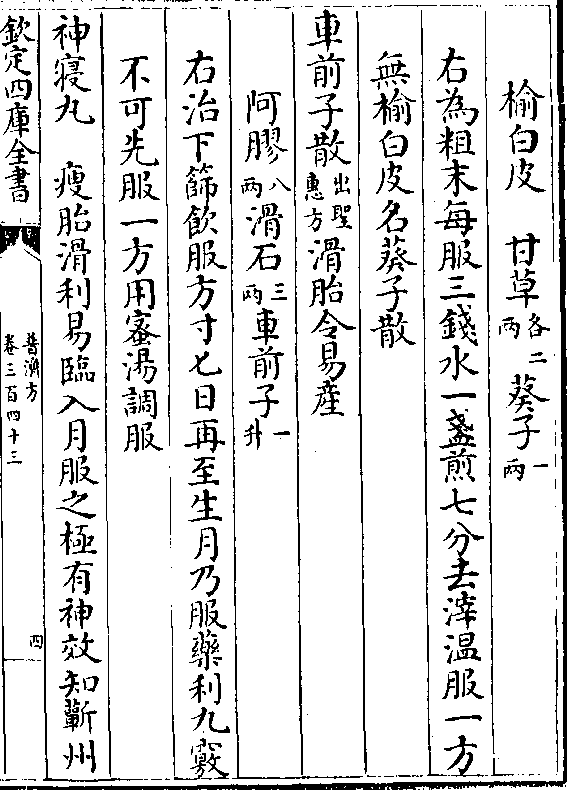 榆白皮　甘草各二兩　葵子一兩
右為粗末每服三錢水一盞煎七分去滓温服一方
無榆白皮名葵子散
車前子散出聖惠方滑胎令易産
阿膠八兩滑石三兩車前子一升
右治下篩飲服方寸匕日再至生月乃服藥利九竅
不可先服一方用蜜湯調服
神寢丸　瘦胎滑利易臨入月服之極有神效知蘄州
欽定四庫全書
普濟方
卷三百四十三
四